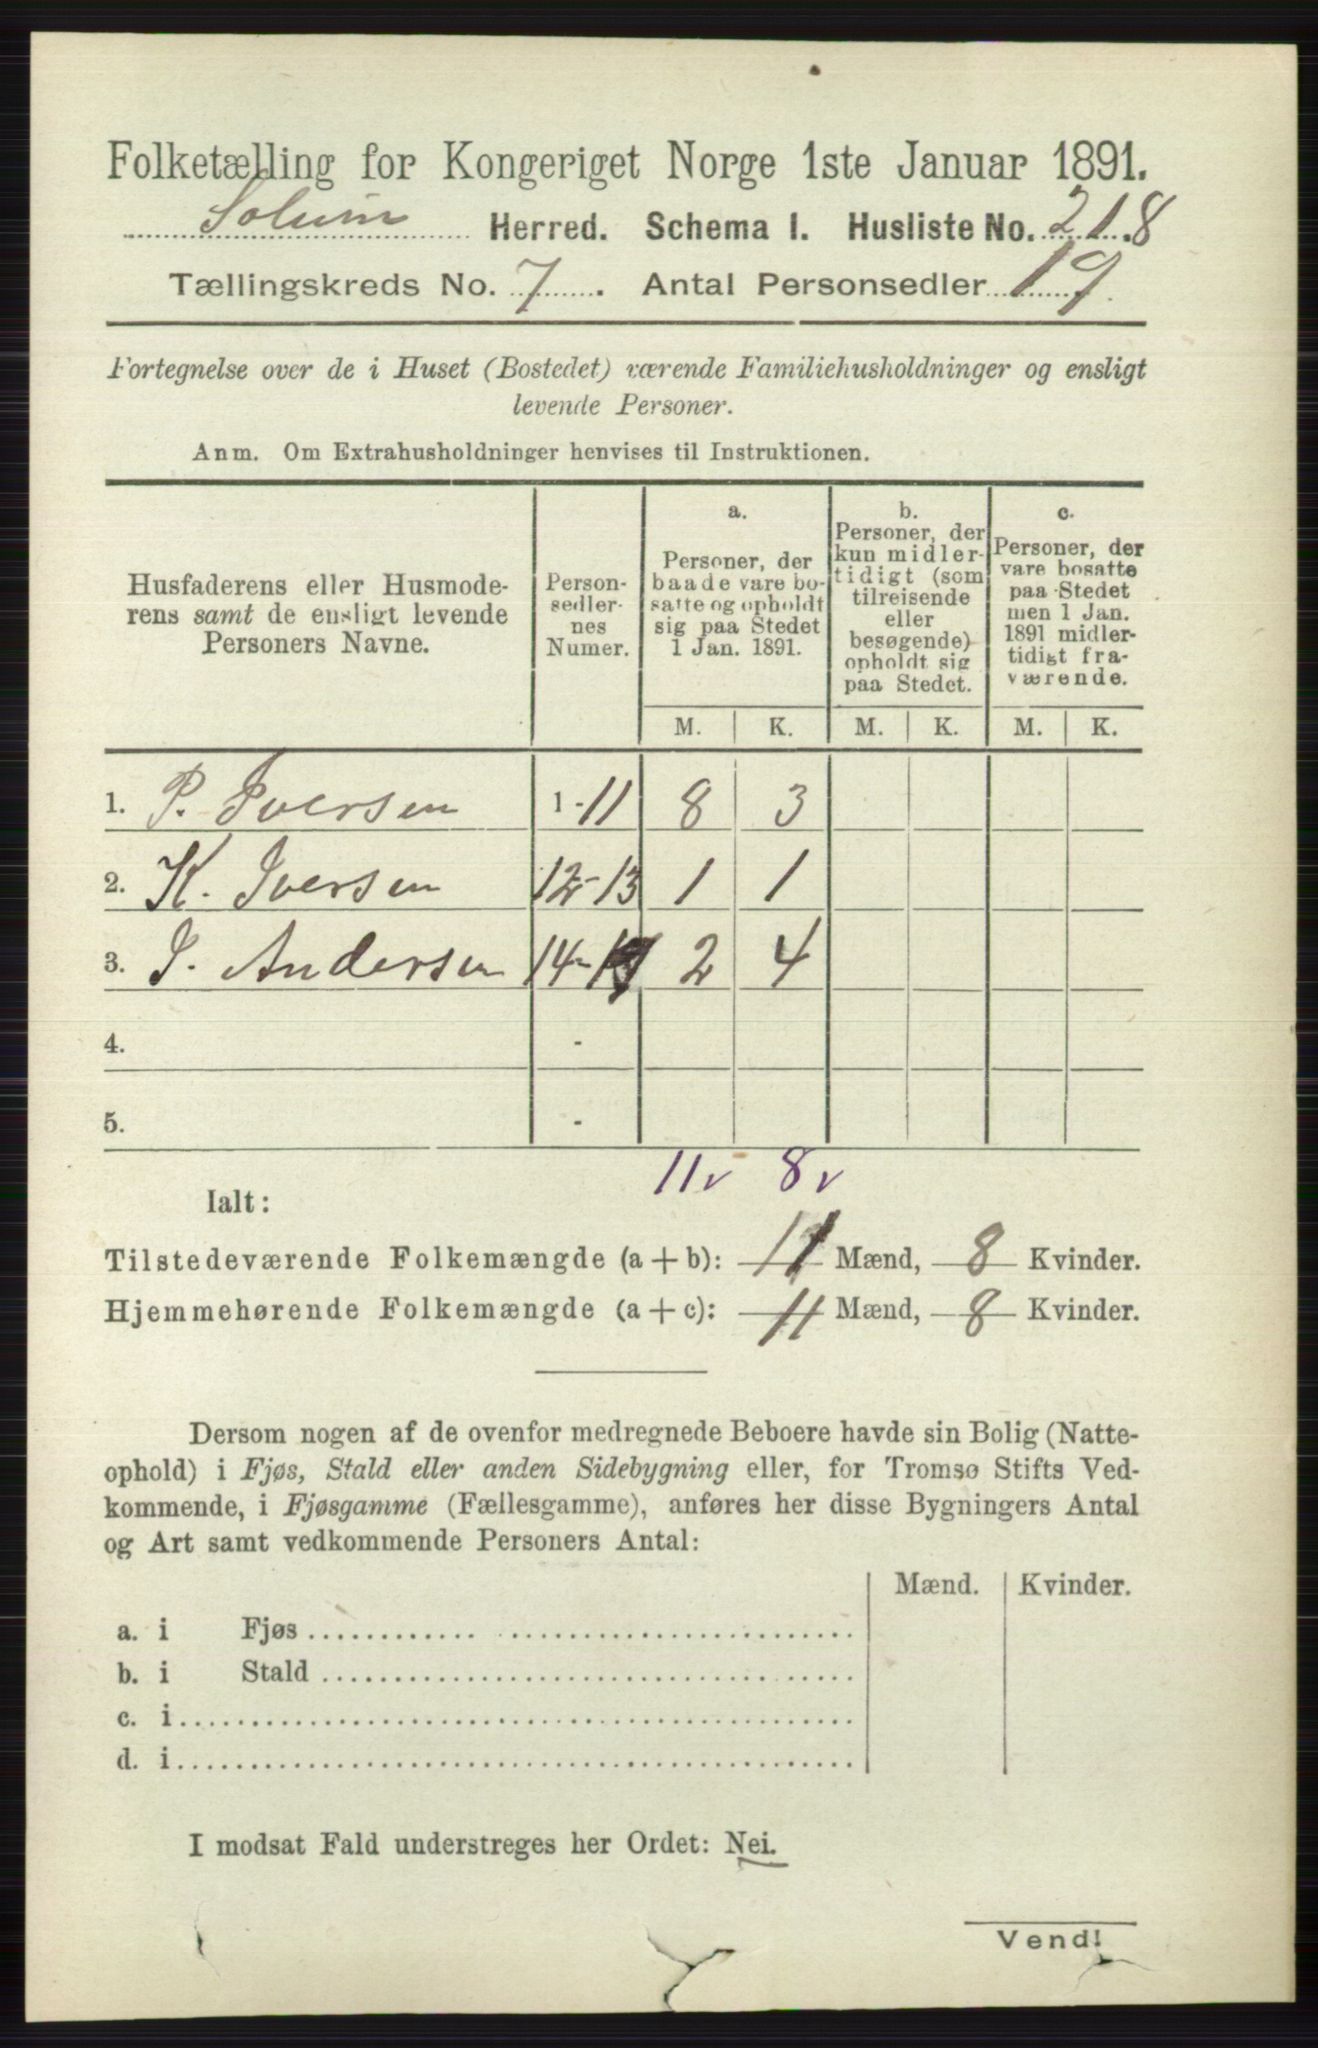 Folketælling for Kongeriget Norge 1ste Januar 1891.
Solum Herred. Schema I. Husliste No. 218
Tællingskreds No. 7. Antal Personsedler 19.
Fortegnelse over de i Huset (Bostedet) værende Familiehusholdninger og ensligt
levende Personer.
Anm. Om Extrahusholdninger henvises til Instruktionen.
Husfaderens eller Husmode-
rens samt de ensligt levende
Personers Navne.
Person-
sedler-
nes
Numer.
a.
Personer, der
baade vare bo-
satte og opholdt
sig paa Stedet
1 Jan. 1891.
b.
Personer, der
kun midler-
tidigt (som
tilreisende
eller
besøgende)
opholdt sig
paa Stedet.
c.
Personer, der
vare bosatte
paa Stedet
men 1 Jan.
1891 midler-
tidigt fra-
værende.
M. K. M. K. M. K.
1. P. Iversen 1-11 8 3
2. K. Iversen 12-13 1 1
3. J. Andersen 14-19 2 4
4. -
5. -
11v 8v
Ialt:
Tilstedeværende Folkemængde (a+b): 11 Mænd, 8 Kvinder.
Hjemmehørende Folkemængde (a+c): 11 Mænd, 8 Kvinder.
Dersom nogen af de ovenfor medregnede Beboere havde sin Bolig (Natte-
ophold) i Fjøs, Stald eller anden Sidebygning eller, for Tromsø Stifts Ved-
kommende, i Fjøsgamme (Fællesgamme), anføres her disse Bygningers Antal
og Art samt vedkommende Personers Antal:
Mænd. Kvinder.
a. i Fjøs
b. i Stald
c. i
d. i
I modsat Fald understreges her Ordet: Nei.
Vend!